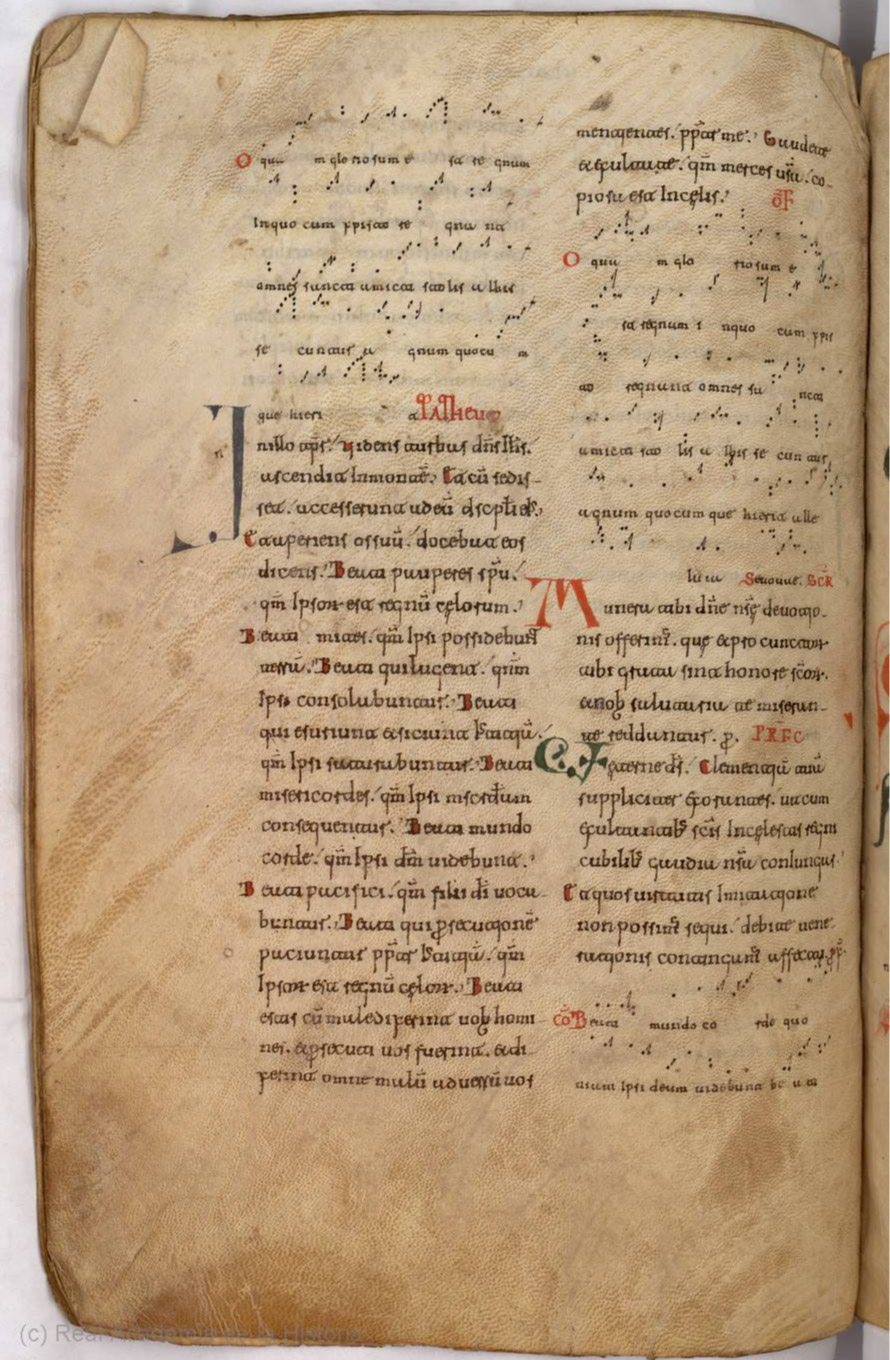 O qua m glo rio sum e sa re gnum
In quo cum xpisto re gna na
omnes sancti amicti stolis albis
se cuntur a gnum quocu m
que hieri t MATHEUM
In illo tpr. Videns turbas dns ihs.
ascendit in monte. Et cū sedis-
set. accesserunt ad eū discpli ei.
Et aperiens os suū. docebat eos
dicens. Beati pauperes spu.
qm ipsor est regnū celorum.
Beati mites. qm ipsi possidebunt
terrā. Beati qui lugent. qnm
ipsi consolabuntur. Beati
qui esuriunt et sitiunt
qm ipsi saturabuntur. Beati
misericordes. qm ipsi
consequentur. Beati mundo
corde. qm ipsi dm uidebunt.
Beati pacifici. qm filii di uoca-
buntur. Beati qui psecutionē
patiuntur ppter iustitiā. qm
ipsor est regnū celor. Beati
estis cū maledixerint uob homi-
nes. et psecuti uos fuerint. et di-
xerint omne malū aduersū uos
mentientes. ppter me. Gaudete
et exultate. qm merces ura. co-
piosa est In celis. OF
O qua m glo riosum e
sa regnum i nquo cum xpis
to regnant omnes sa ncti
amicti sto lis a lbis se cuntur
agnum quocumque hierit alle
luia Seuouae. SCR
Munera tibi dne nre deuotio-
nis offerimus. que et pro cunctor
tibi grata sint honore scor.
et nob salutaria te miseran-
te reddantur. p. PRFC
eterne ds. Clementiā tuā
suppliciter exorantes. ut cum
exultantib scis In celestis regni
cubilib gaudia nra coniungas.
Et quos uirtutis Imitatione
non possumus sequi. debite uene-
rationis contingamus affectu. p
CO Beati mundo co rde quo
niam ipsi deum uidebunt be a ti
(c) Real Academia de la Historia